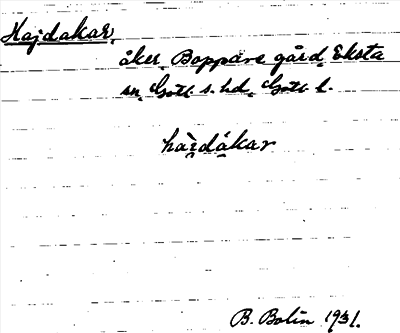 Hajdakar,
åker, Boppäre gård, Eksta
sn, Gotl. s. hd, Gotl. l.
hàrdákar
B. Bolin 1931.